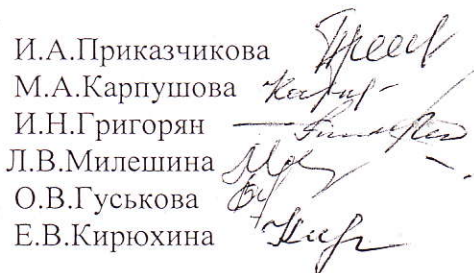 И.А.Приказчикова
М.А.Карпушова
И.Н.Григорян
Л.В.Милешина
О.В.Гуськова
Е.В.Кирюхина